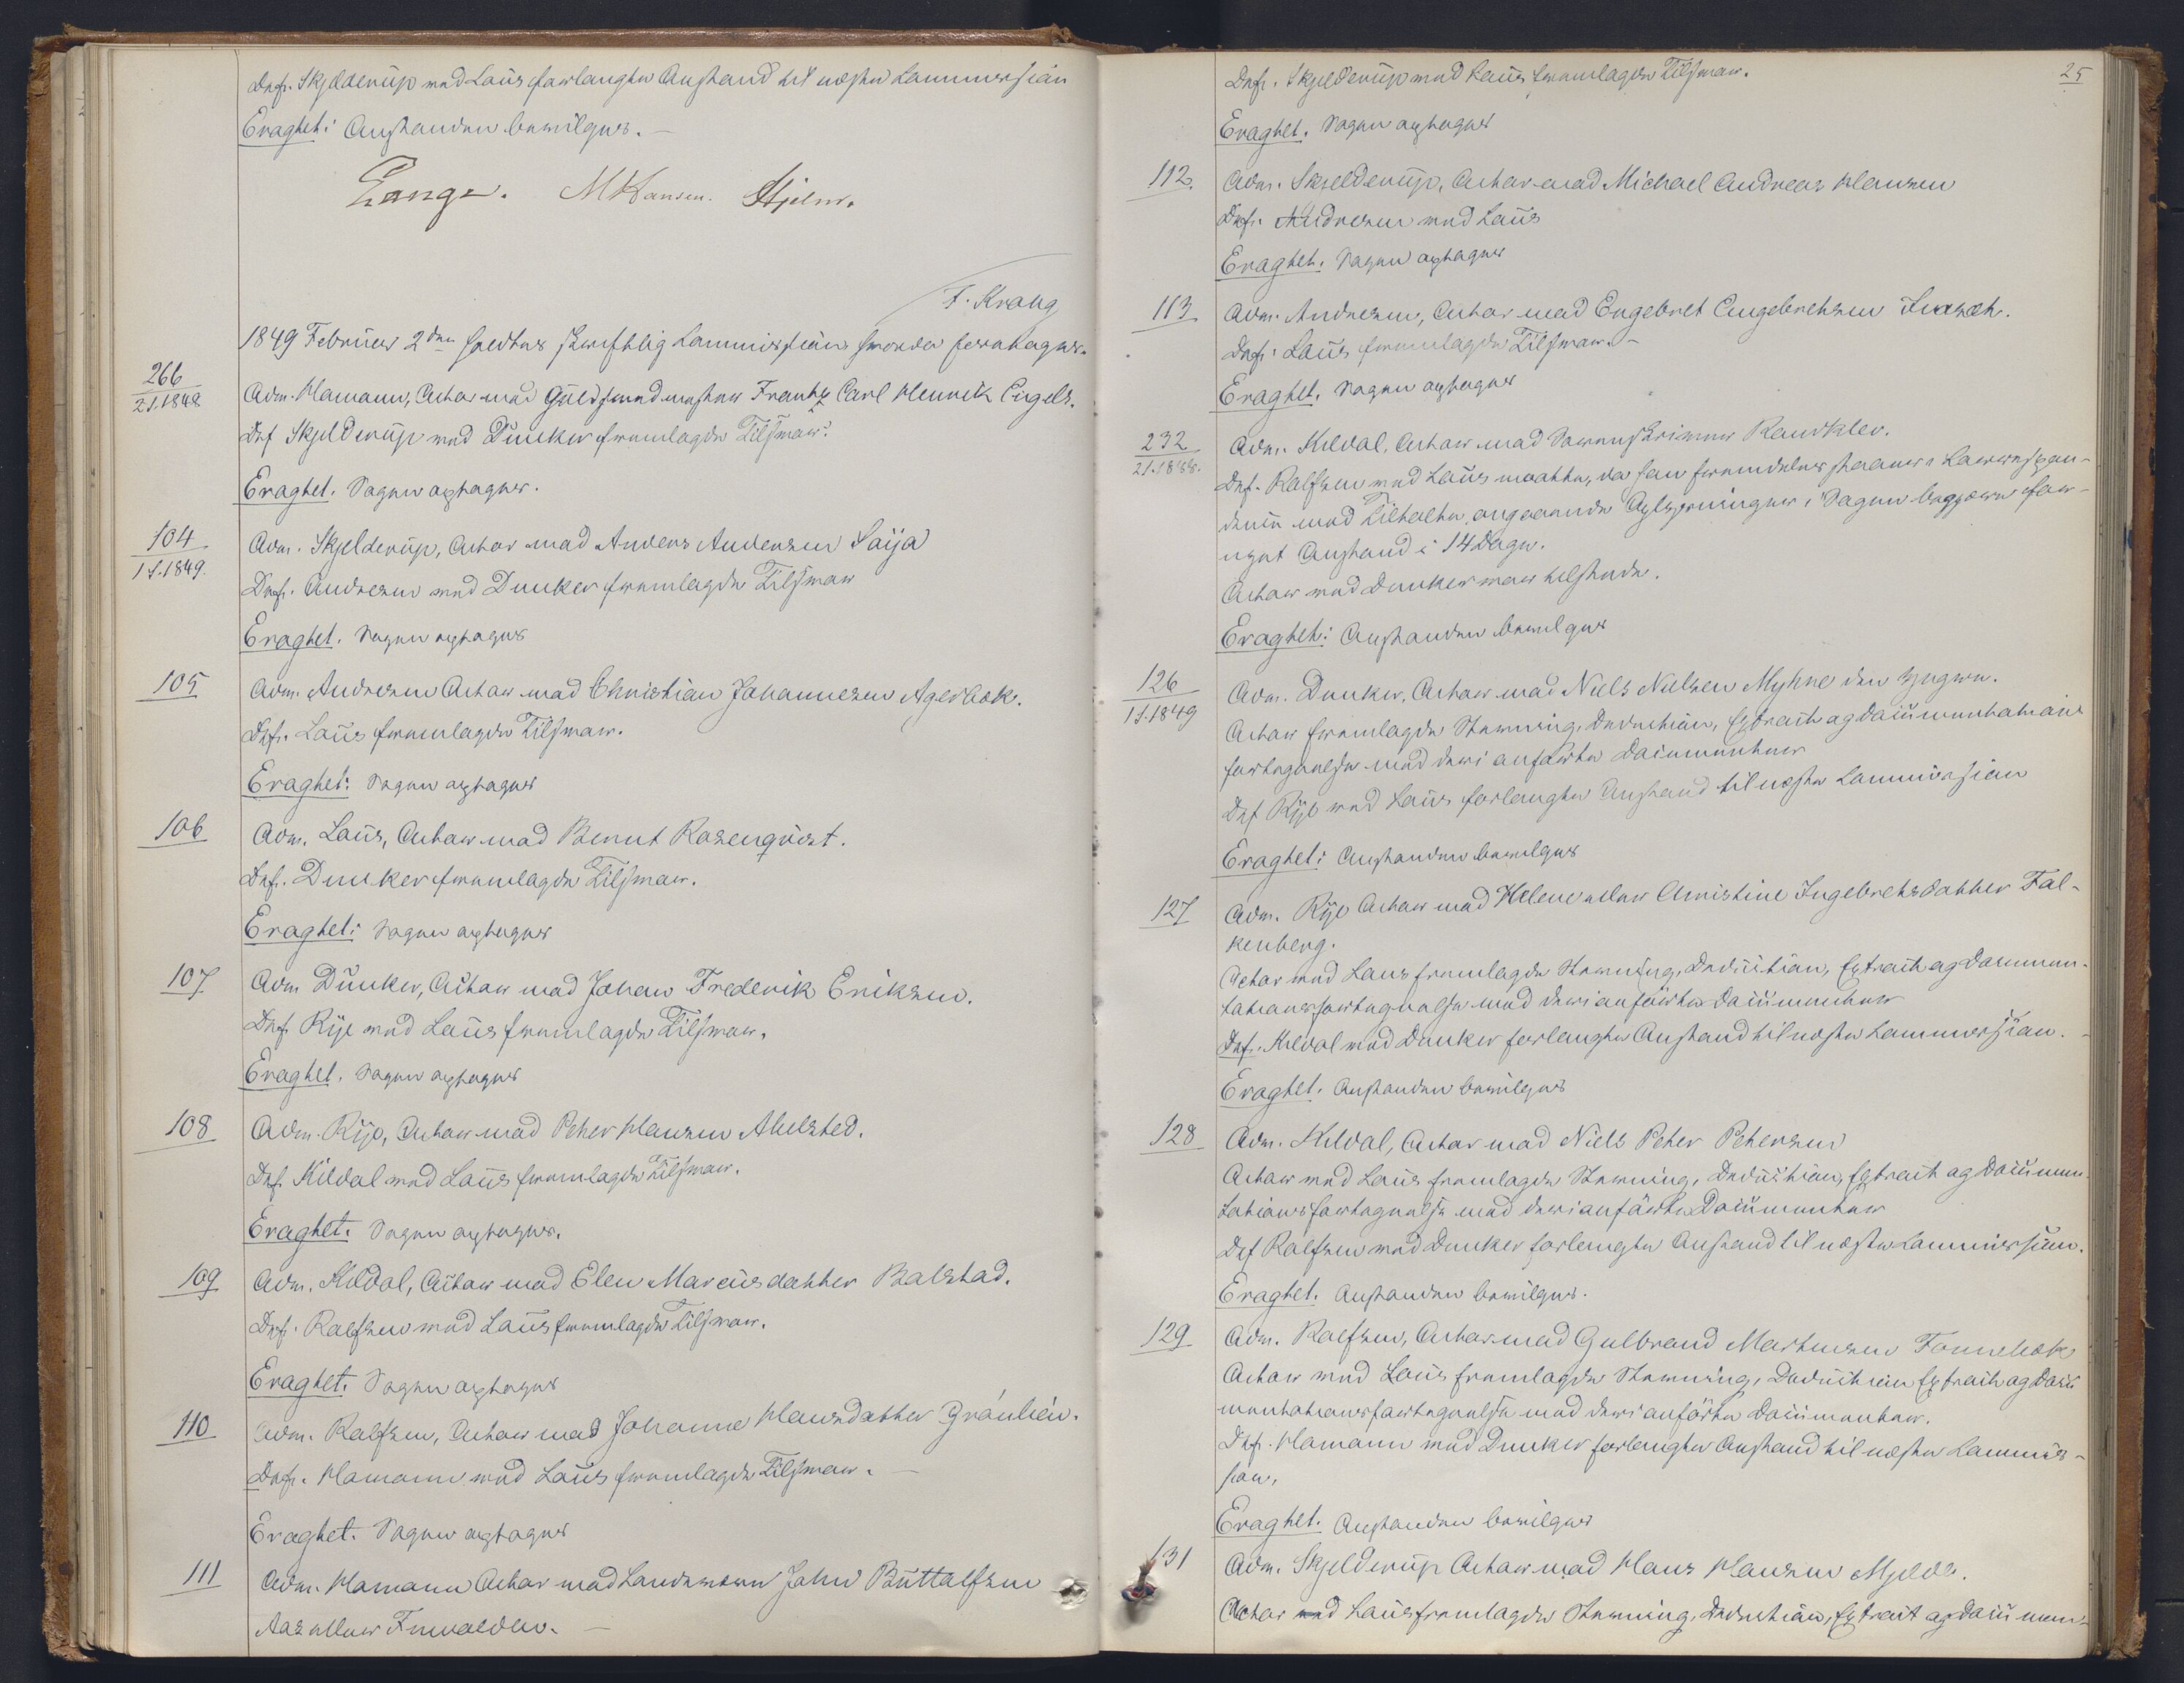 Def. Skjelderup med Lous forlangte Anstand til næste Commission
Eragtet: Anstanden bevilges.
Lange. M Hansen. Hjelm.
F. Krag
1849 Februar 2den holdtes skriftlig Commission hvorda foretages.
266
2 S. 1848
Adv. Hamann, Actor mod Guldsmedmester Frantz Carl Henrik Engels.
Def Skjelderup med Dunker fremlagde Tilsvar.
Eragtet. Sagen optages.
104
1 S. 1849.
Adv. Skjelderup, Actor mod Anders Andersen Saija
Def. Andresen med Dunker fremlagde Tilsvar
Eragtet. Sagen optages
105
Adv. Andresen Actor mod Christian Johannesen Agerbæk.
Def. Lous fremlagde Tilsvar.
Eragtet: Sagen optages
106
Adv. Lous, Actor mod Bernt Rosenqvist.
Def. Dunker fremlagde Tilsvar.
Eragtet: Sagen optages
107
Adv Dunker, Actor mod Johan Frederik Eriksen.
Def Rije med Lous fremlagde Tilsvar.
Eragtet. Sagen optages
108
Adv. Rije, Actor mod Peter Hansen Abelsted.
Def. Kildal med Lous fremlagde Tilsvar.
Eragtet. Sagen optages.
109
Adv. Kildal, Actor mod Elen Marcusdatter Balstad.
Def. Rolfsen med Lous fremlagde Tilsvar.
Eragtet. Sagen optages
110
Adv. Rolfsen, Actor mod Johanne Hansdatter Grønlien.
Def. Hamann med Lous fremlagde Tilsvar.
Eragtet. Sagen optages
111
Adv. Hamann Actor mod Landsmeen John Buttolfsen
Aas eller
25
Def. Skjelderup med Lous fremlagde Tilsvar.
Eragtet. Sagen optages
112.
Adv. Skjelderup, Actor mod Michael Andreas Hansen
Def. Andresen med Lous
Eragtet. Sagen optages
113
Adv. Andresen, Actor mod Engebret Engebretsen
Def. Lous fremlagde Tilsvar.
Eragtet. Sagen optages
232
2 S. 1848.
Adv. Kildal, Actor mod Sorenskriver Randklev.
Def. Rolfsen med Lous maatte, da han fremdeles staaer i Correspon-
dence med Tiltalte angaaende Oplysninger i Sagen begjære for-
nyet Anstand i 14 Dage.
Actor med Dunker var tilstede.
Eragtet: Anstanden bevilges
126
1 S. 1849
Adv. Dunker, Actor mod Niels Nielsen Myhre den yngre.
Actor fremlagde Stevning, Deduction, Extract og Documentations
fortegnelse med deri anførte Documenter
Def Rije med Lous forlangte Anstand til næste Commission
Eragtet: Anstanden bevilges
127
Adv. Rije Actor mod Helene eller Christine Ingebretsdatter Fal-
kenberg.
Actor med Lous fremlagde Stevning, Deduction, Extract og Documen-
tationsfortegnelse med deri anførte Documenter
Def. Kildal med Dunker forlangte Anstand til næste Commission.
Eragtet. Anstanden bevilges
128
Adv. Kildal, Actor mod Niels Peter Petersen
Actor med Lous fremlagde Stevning, Deduction, Extract og Documen
tationsfortegnelse med deri anførte Documenter
Def Rolfsen med Dunker forlangte Anstand til næste Commission.
Eragtet. Anstanden bevilges.
129
Adv. Rolfsen, Actor mod Gulbrand Mortensen
Actor med Lous fremlagde Stevning, Deduction Extract og Docu
mentationsfortegnelse med deri anførte Documenter.
Def. Hamann med Dunker forlangte Anstand til næste Commis-
sion.
Eragtet. Anstanden bevilges
131
Adv. Skjelderup Actor mod Hans Hansen Mjelde.
Actor med Lous fremlagde Stevning, Deduction, Extract og Documen-